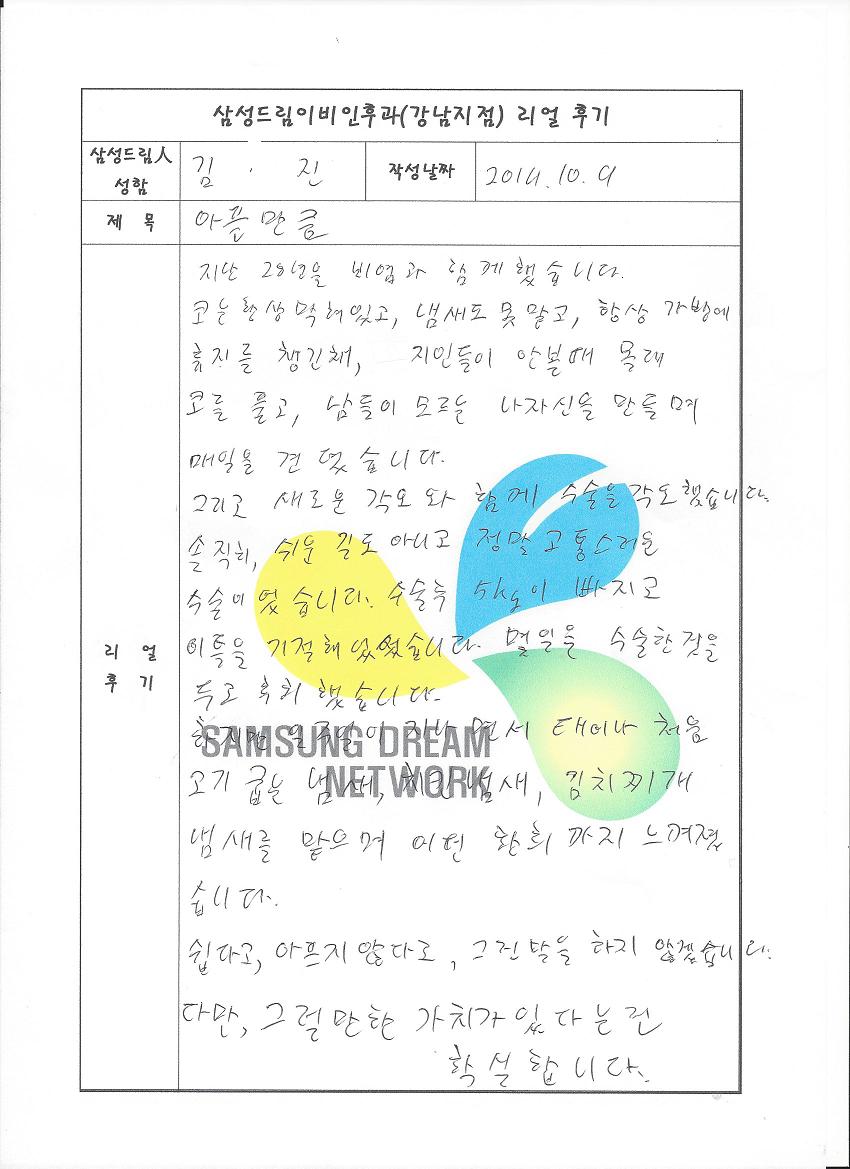 삼성드림이비인후과(강남지점) 리얼 후기
삼성드림人 성함 김 · 진 작성날짜 2014.10.9
제 목 아픈만큼
리 얼 후 기
지난 28년을 비염과 함께했습니다.
코는 항상 막혀있고, 냄새도 못맡고, 항상 가방에
휴지를 챙긴채, 지인들이 안볼때 몰래
코를 풀고, 남들이 모르는 나자신을 만들며
매일을 견뎠습니다.
그리고 새로운 각오와 함께 수술을 각오했습니다.
솔직히, 쉬운 길도 아니고 정말 고통스러운
수술이었습니다. 수술후 5kg이 빠지고
이틀을 기절해있었습니다. 몇일은 수술한것을
두고 후회했습니다.
하지만 일주일이 지나면서 태어나 처음
고기 굽는 냄새, 치킨냄새, 김치찌개
냄새를 맡으며 이런 환희까지 느껴졌
습니다.
쉽다고, 아프지않다고, 그런말을 하지 않겠습니다.
다만, 그럴만한 가치가 있다는건
확실합니다.
SAMSUNG DREAM
NETWORK